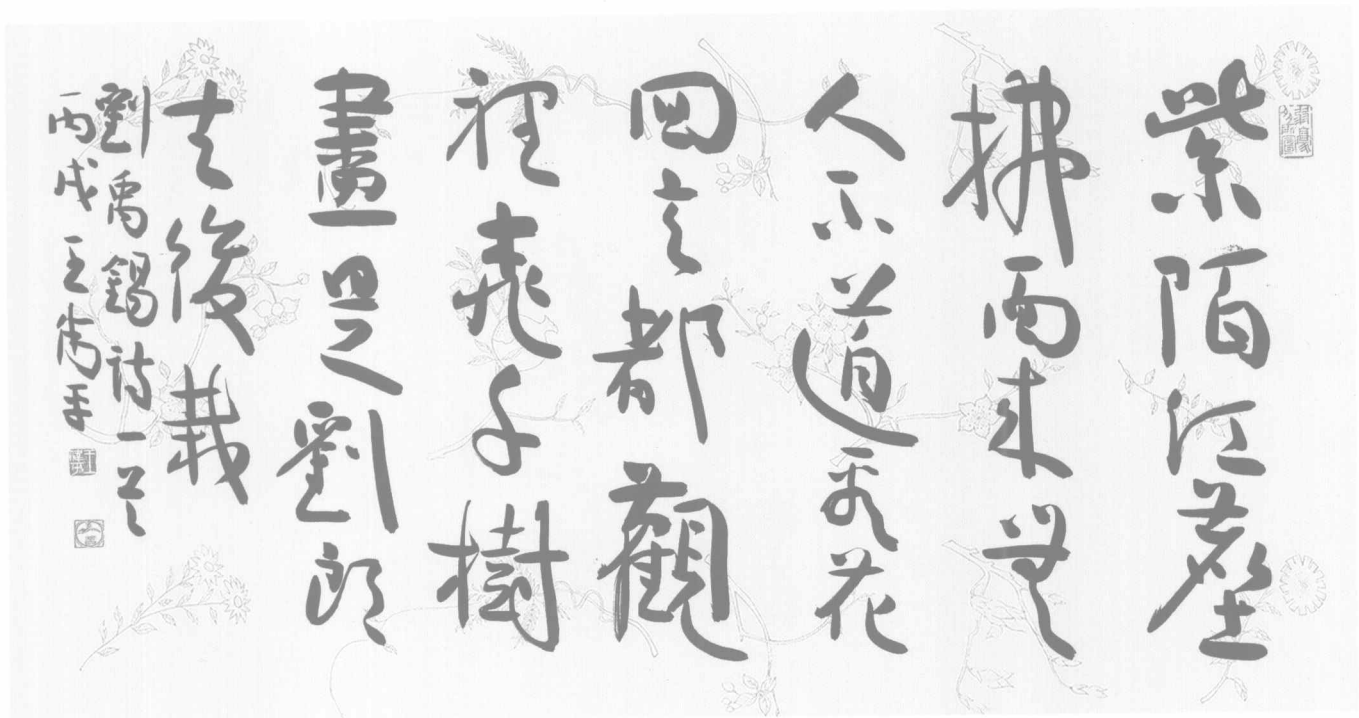 紫陌红塵
拂面来無
人不道看花
回玄都觀
裡桃千樹
盡是劉郎
去後栽
劉禹錫詩一首
丙戌王